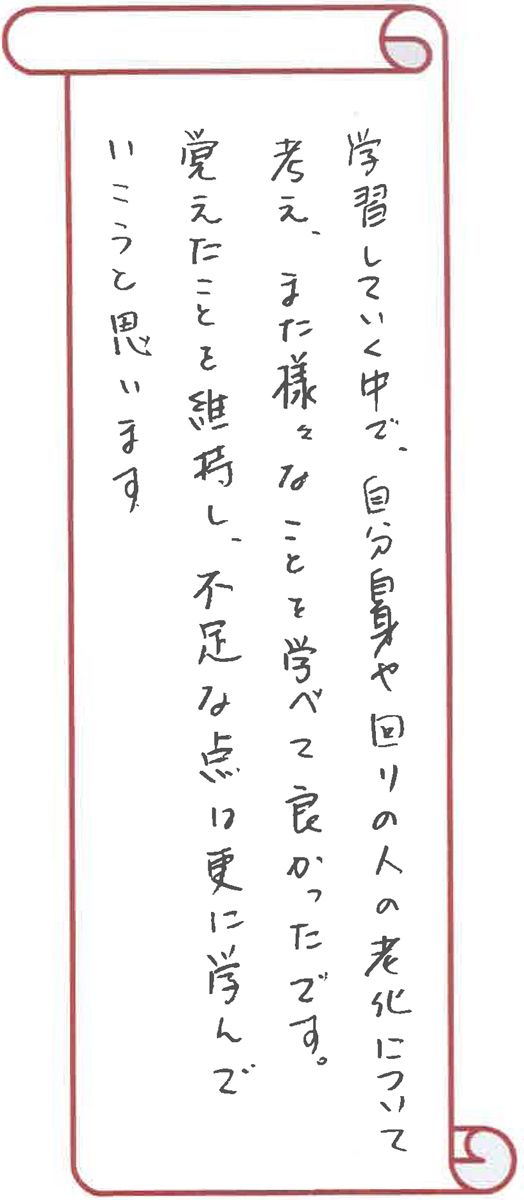 学習していく中で、自分自身や回りの人の老化について
考え、また様々なことを学べて良かったです。
覚えたことを維持し、不足な点は更に学んで
いこうと思います